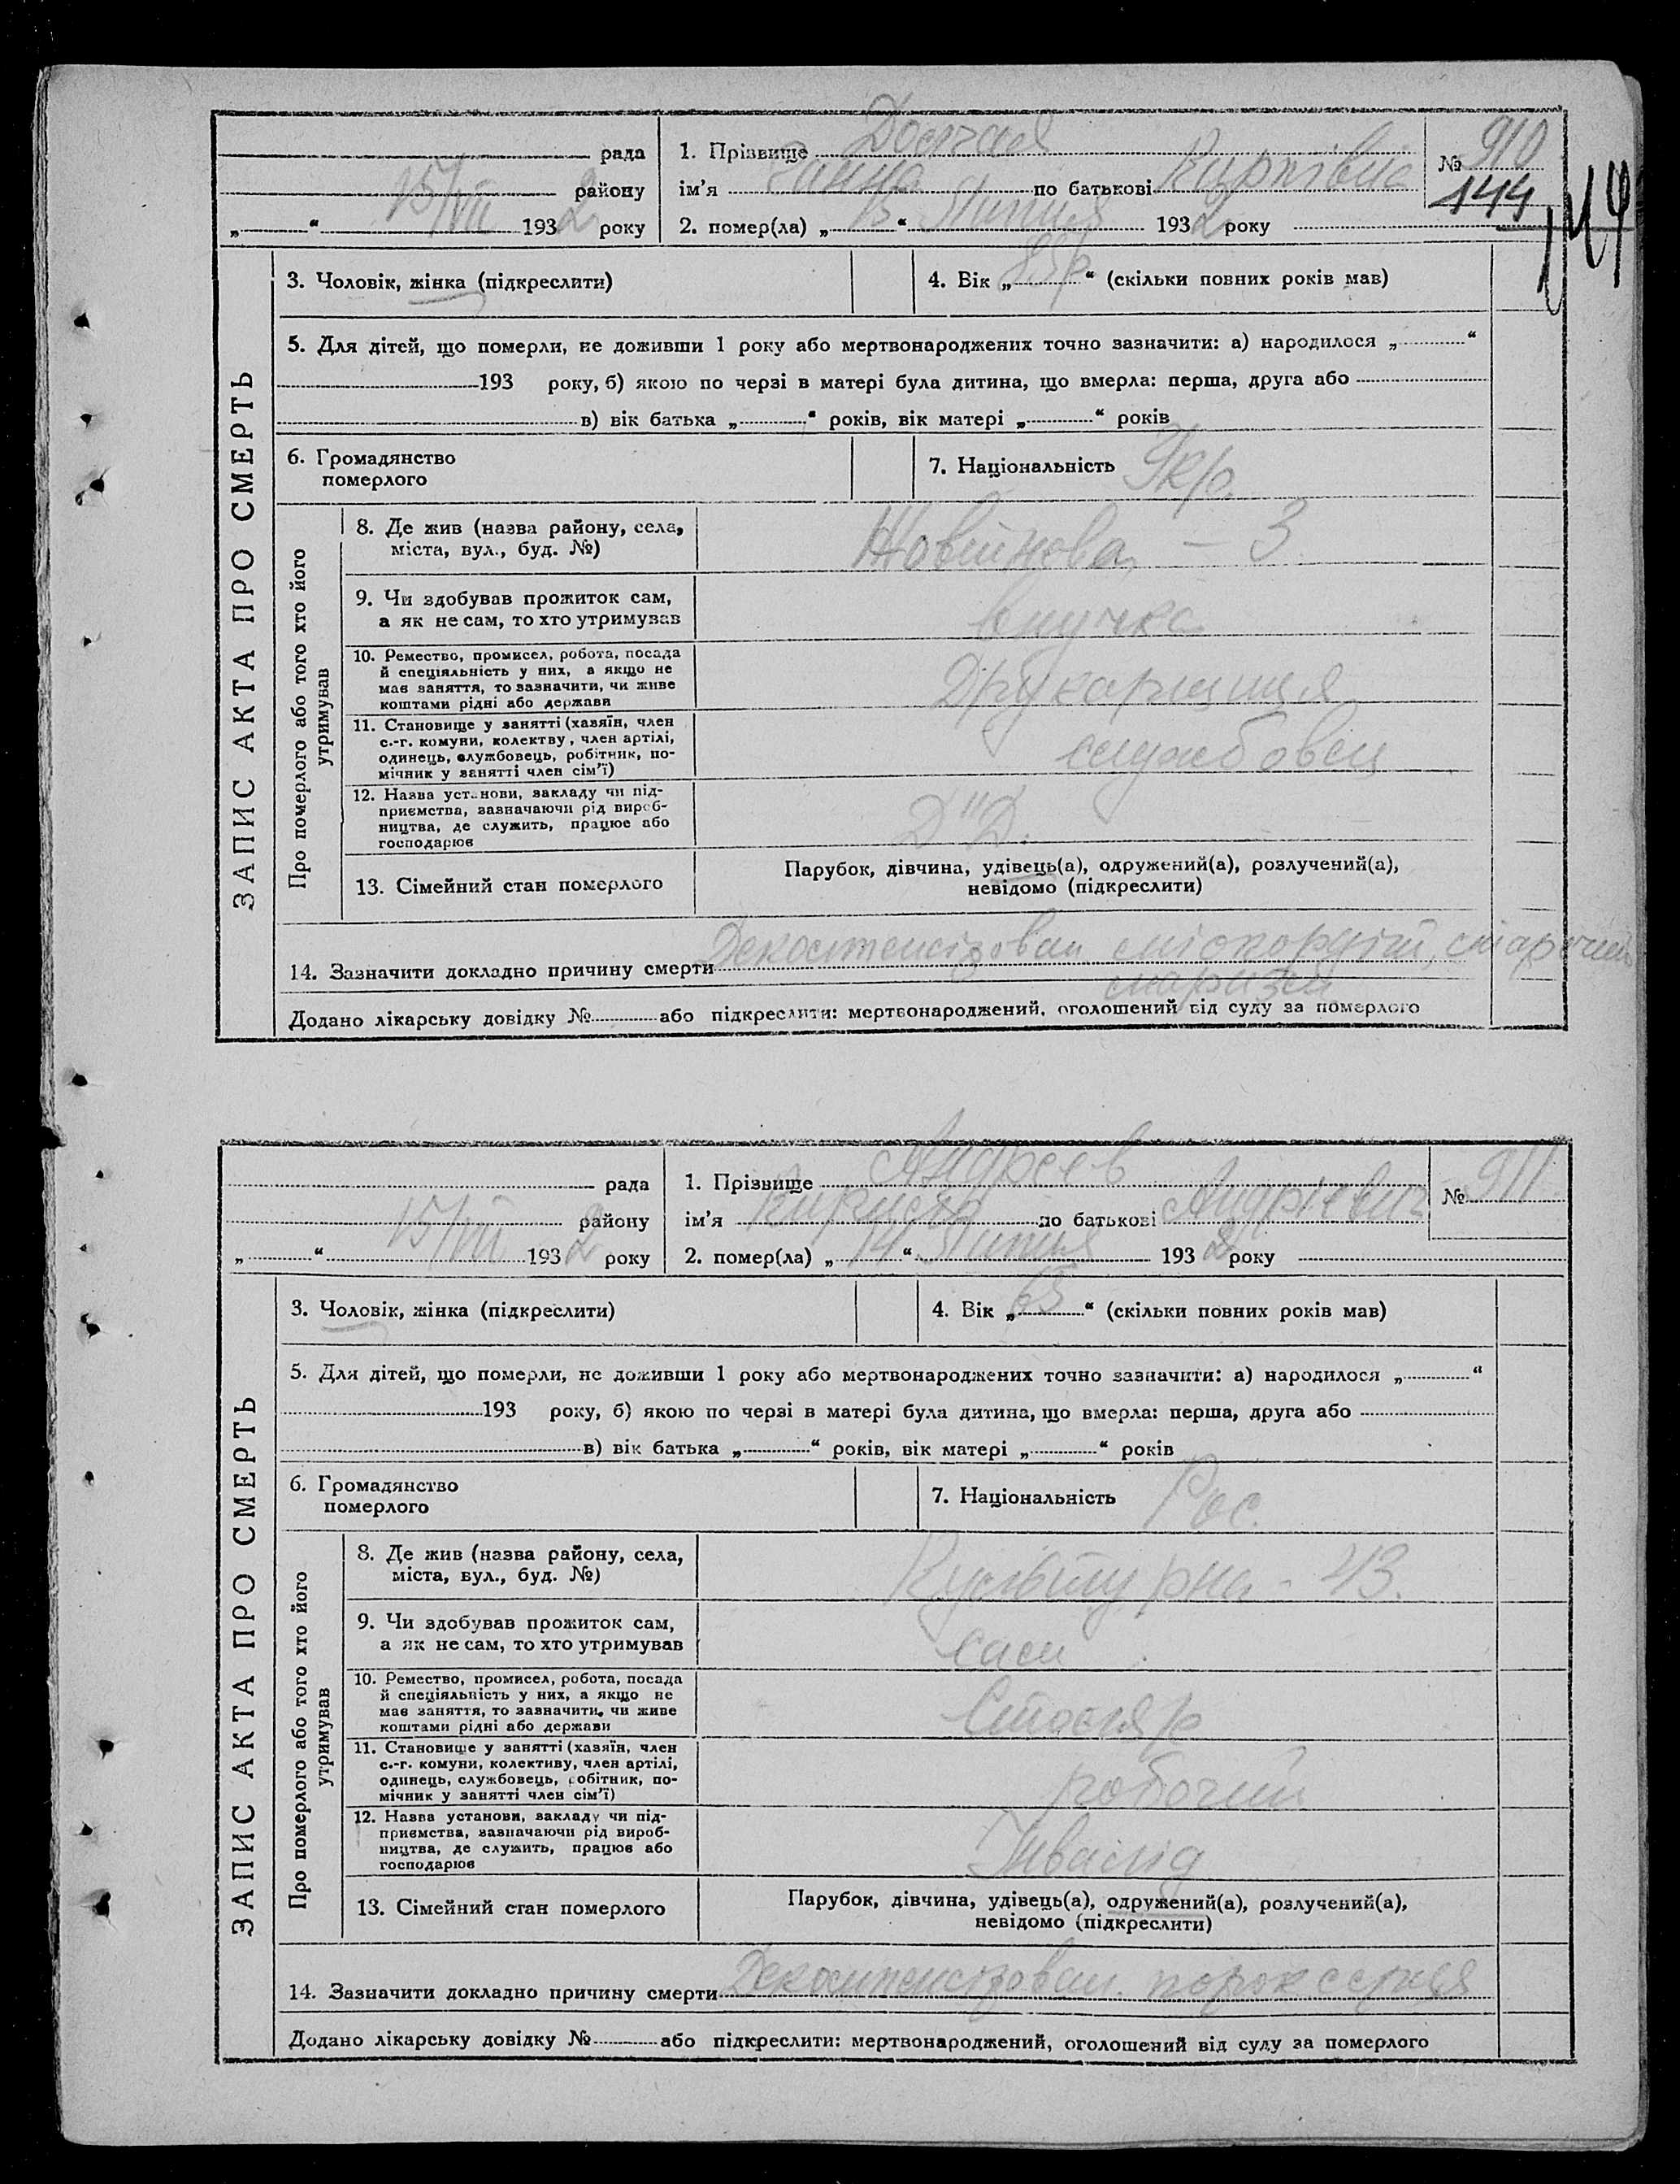 ЗАПИС АКТА ПРО СМЕРТЬ
рада
15/VII району
„ “ 1932 року
1. Прізвище
ім’я Ганна по батькові Карпівна
2. помер(ла) „15“ Липня 1932 року
№ 910
144
144
3. Чоловік, жінка (підкреслити)
4. Вік „85р“ (скільки повних років мав)
5. Для дітей, що померли, не доживши 1 року або мертвонароджених точно зазначити: а) народилося „ “
193 року, б) якою по черзі в матері була дитина, що вмерла: перша, друга або
в) вік батька „ “ років, вік матері „ “ років
6. Громадянство
померлого
7. Національність Укр.
Про померлого або того хто його
утримував
8. Де жив (назва району, села,
міста, вул., буд. №)
– 3
9. Чи здобував прожиток сам,
а як не сам, то хто утримував
внучка
10. Ремество, промисел, робота, посада
й спеціяльність у них, а якщо не
має заняття, то зазначити, чи живе
коштами рідні або держави
Друкарниця
11. Становище у занятті (хазяїн, член
с.-г. комуни, колектву, член артілі,
одинець, службовець, робітник, по-
мічник у занятті член сім’ї)
службовец
12. Назва установи, закладу чи під-
приємства, зазначаючи рід вироб-
ництва, де служить, працює або
господарює
Д"Д.
13. Сімейний стан померлого
Парубок, дівчина, удівець(а), одружений(а), розлучений(а),
невідомо (підкреслити)
14. Зазначити докладно причину смерти Декомпенсізован міокордіт, старечий
маразм
Додано лікарську довідку № або підкреслити: мертвонароджений, оголошений від суду за померлого
ЗАПИС АКТА ПРО СМЕРТЬ
рада
15/VII району
„ “ 1932 року
1. Прізвище Андреев
ім’я по батькові Андріевич
2. помер(ла) „14“ Липня 1932 року
№ 911
3. Чоловік, жінка (підкреслити)
4. Вік „65“ (скільки повних років мав)
5. Для дітей, що померли, не доживши 1 року або мертвонароджених точно зазначити: а) народилося „ “
193 року, б) якою по черзі в матері була дитина, що вмерла: перша, друга або
в) вік батька „ “ років, вік матері „ “ років
6. Громадянство
померлого
7. Національність Рос.
Про померлого або того хто його
утримував
8. Де жив (назва району, села,
міста, вул., буд. №)
Культурна - 43.
9. Чи здобував прожиток сам,
а як не сам, то хто утримував
сам
10. Ремество, промисел, робота, посада
й спеціяльність у них, а якщо не
має заняття, то зазначити, чи живе
коштами рідні або держави
Столяр
11. Становище у занятті (хазяїн, член
с.-г. комуни, колективу, член артілі,
одинець, службовець, робітник, по-
мічник у занятті член сім’ї)
робочий
12. Назва установи, закладу чи під-
приємства, зазначаючи рід вироб-
ництва, де служить, працює або
господарює
Інвалід
13. Сімейний стан померлого
Парубок, дівчина, удівець(а), одружений(а), розлучений(а),
невідомо (підкреслити)
14. Зазначити докладно причину смерти Декомпенсізован. порок серця
Додано лікарську довідку № або підкреслити: мертвонароджений, оголошений від суду за померлого